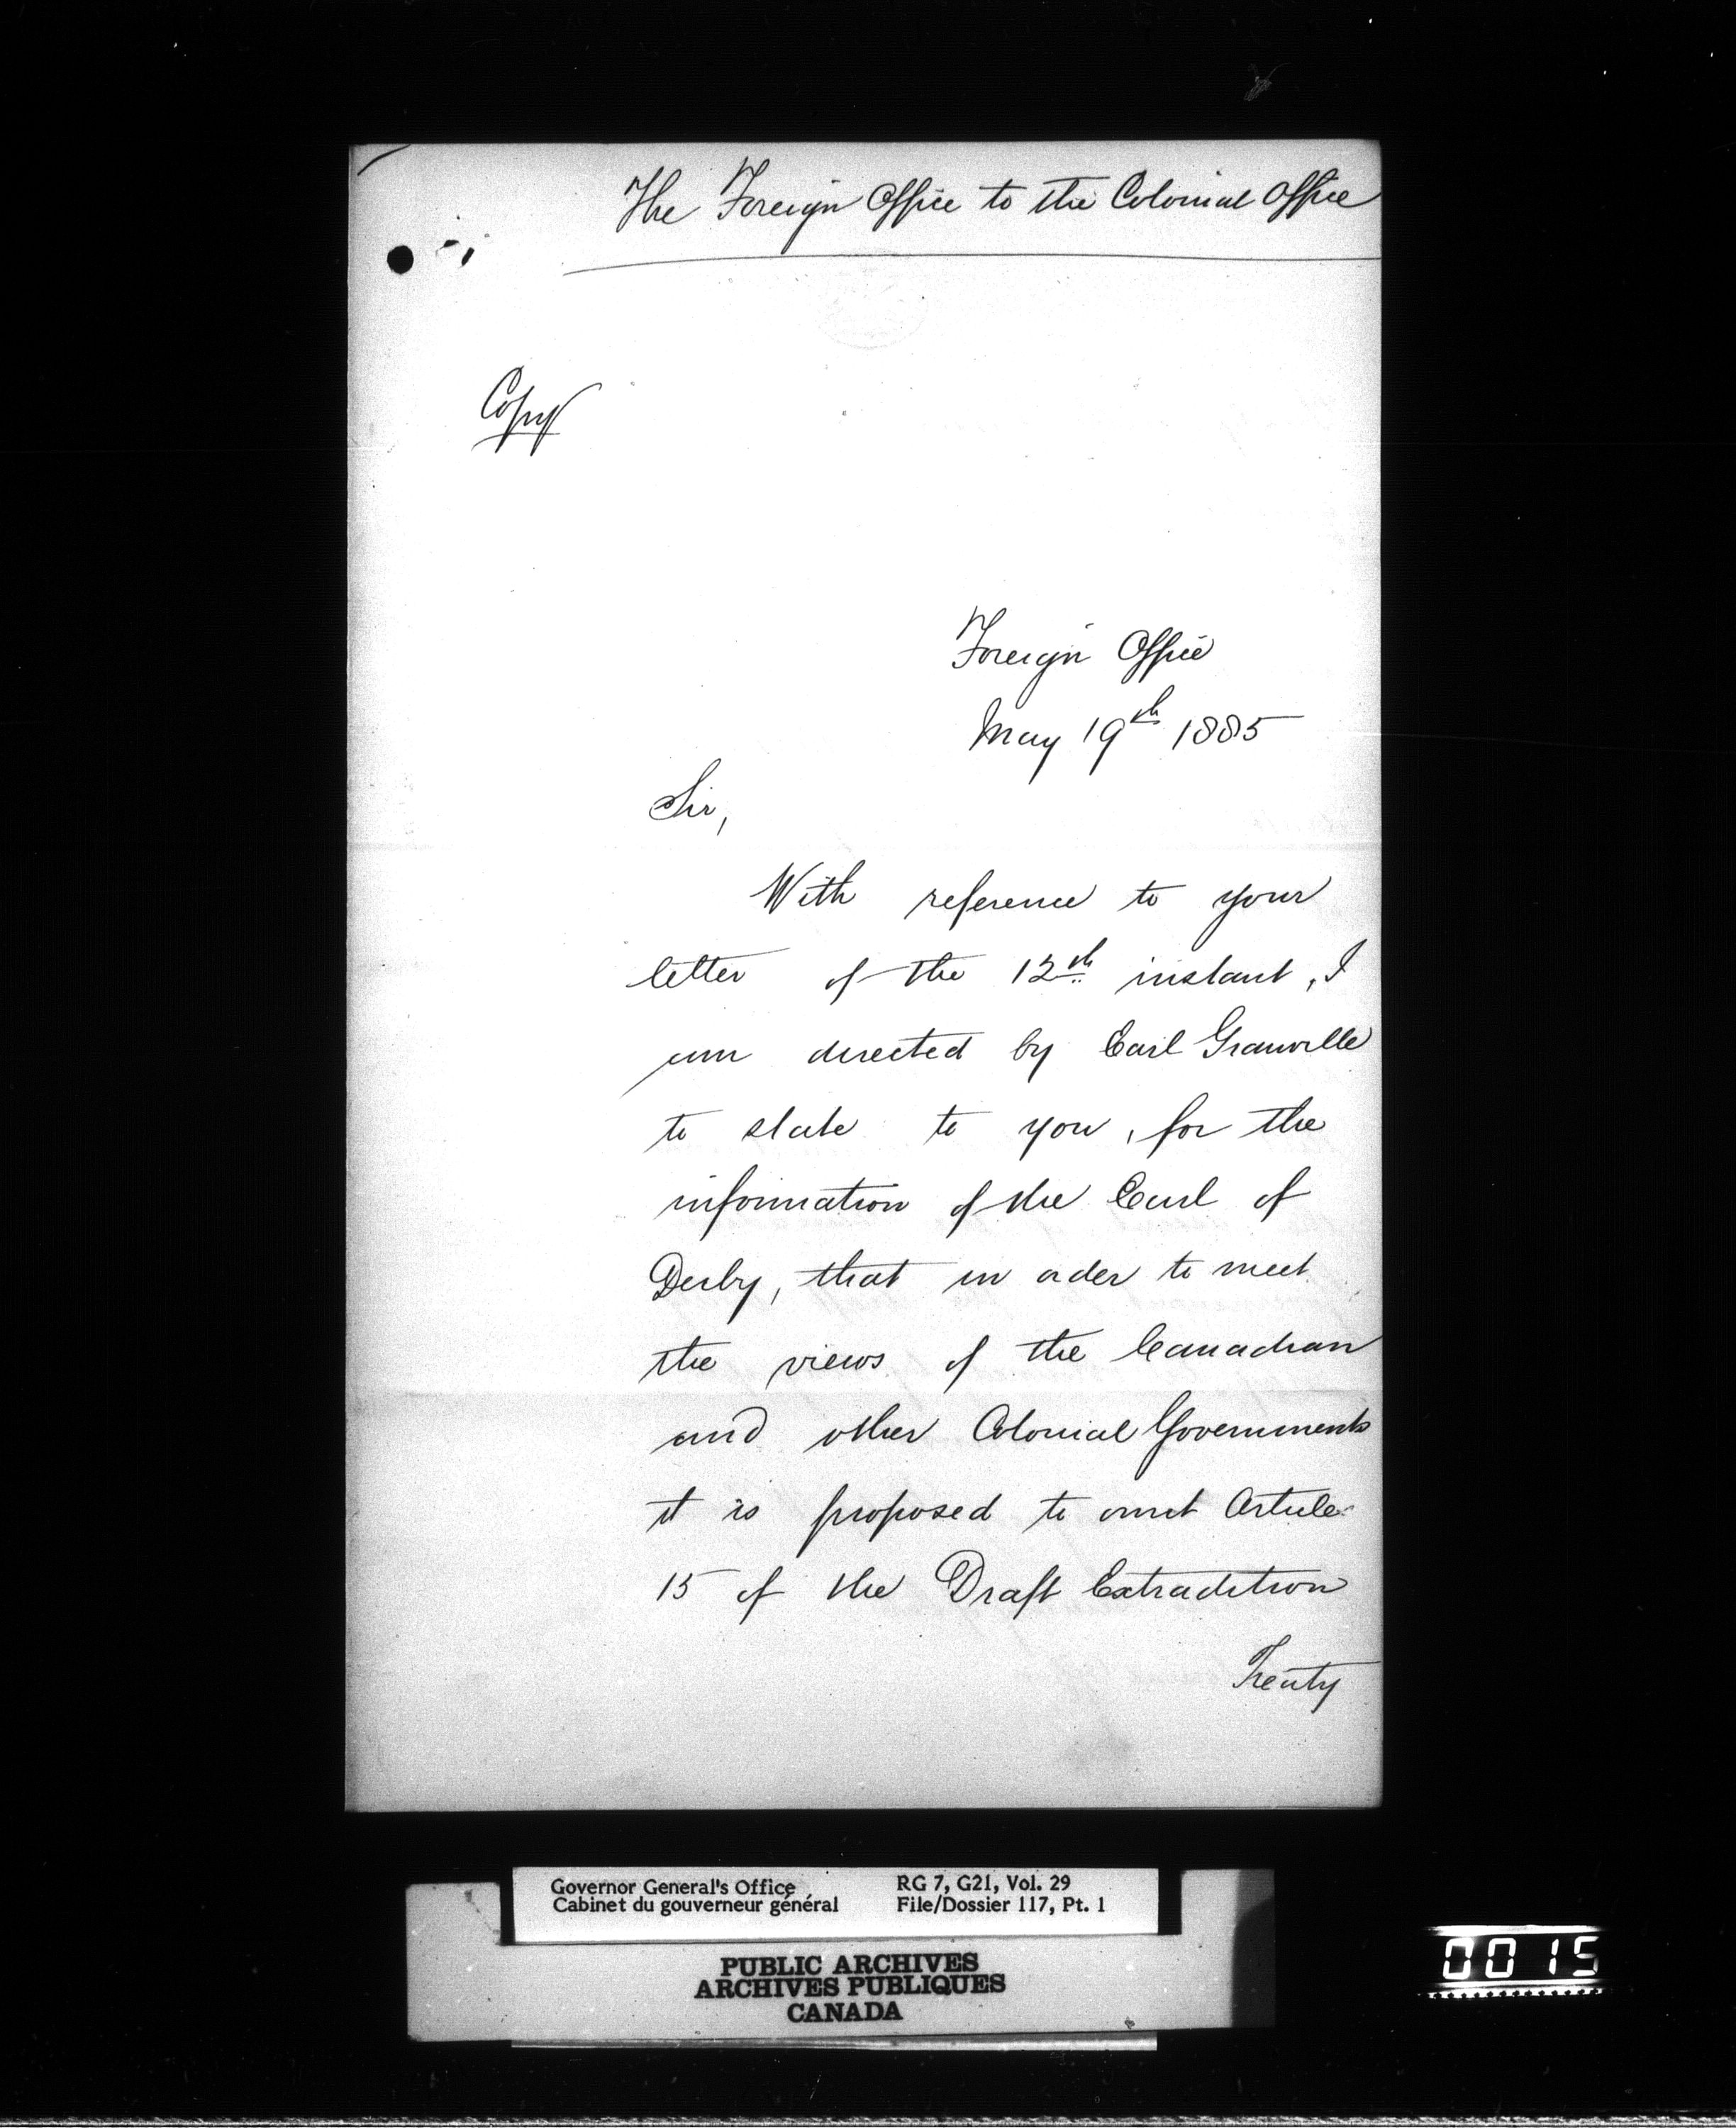 The Foreign Office to the Colonial Office
Copy
Foreign Office
May 19th 1885
Sir,
With reference to your
letter of the 12th instant, I
am directed by Earl Granville
to state to you, for the
information of the Earl of
Derby, that in order to meet
the views of the Canadian
and other Colonial Governments
it is proposed to omit Article
15 of the Draft Extradition
Treaty
Governor General's Office
Cabinet du gouverneur général
RG 7, G21, Vol. 29
File/Dossier 117, Pt. 1
PUBLIC ARCHIVES
ARCHIVES PUBLIQUES
CANADA
0015